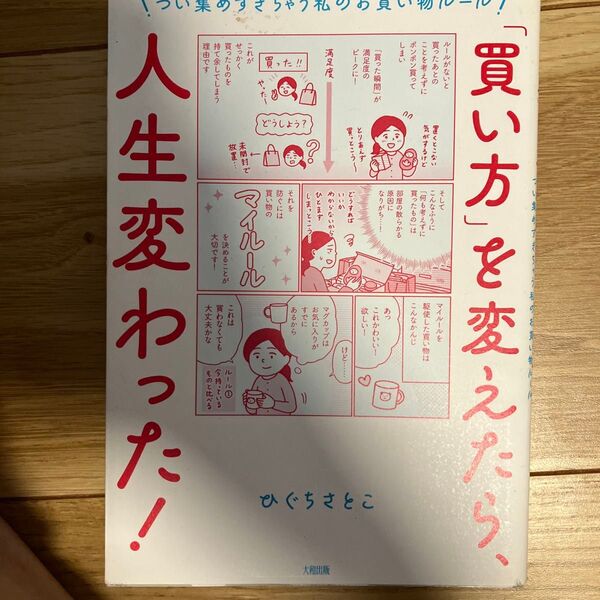 つい集めすぎちゃう私のお買い物ルール!
「買い方」を変えたら、
人生変わった!
ルールがないと
買ったあとの
ことを考えずに
ポンポン買って
しまい
置くとこない
気がするけど
とりあえず
買っとこう!
「買った瞬間」が
満足度の
ピークに!
満足度
買った!!
やったー
どうしよう?
未開封で
放置…
これが
せっかく
買ったものを
持て余してしまう
理由です
そして
こんなふうに
「何も考えずに
買ったもの」は
部屋の散らかる
原因に
なりがち…!
どうすれば
いいか
わからないから
ひとまず
しまっとこう
それを
防ぐには
買い物の
マイルール
を決めることが
大切です!
マイルールを
駆使した買い物は
こんなかんじ
あっ
これかわいい!
欲しい!
けど……
マグカップは
お気に入りが
すでに
あるから
これは
買わなくても
大丈夫かな
ルール①
今持っている
ものと比べる
ひぐちさとこ
大和出版